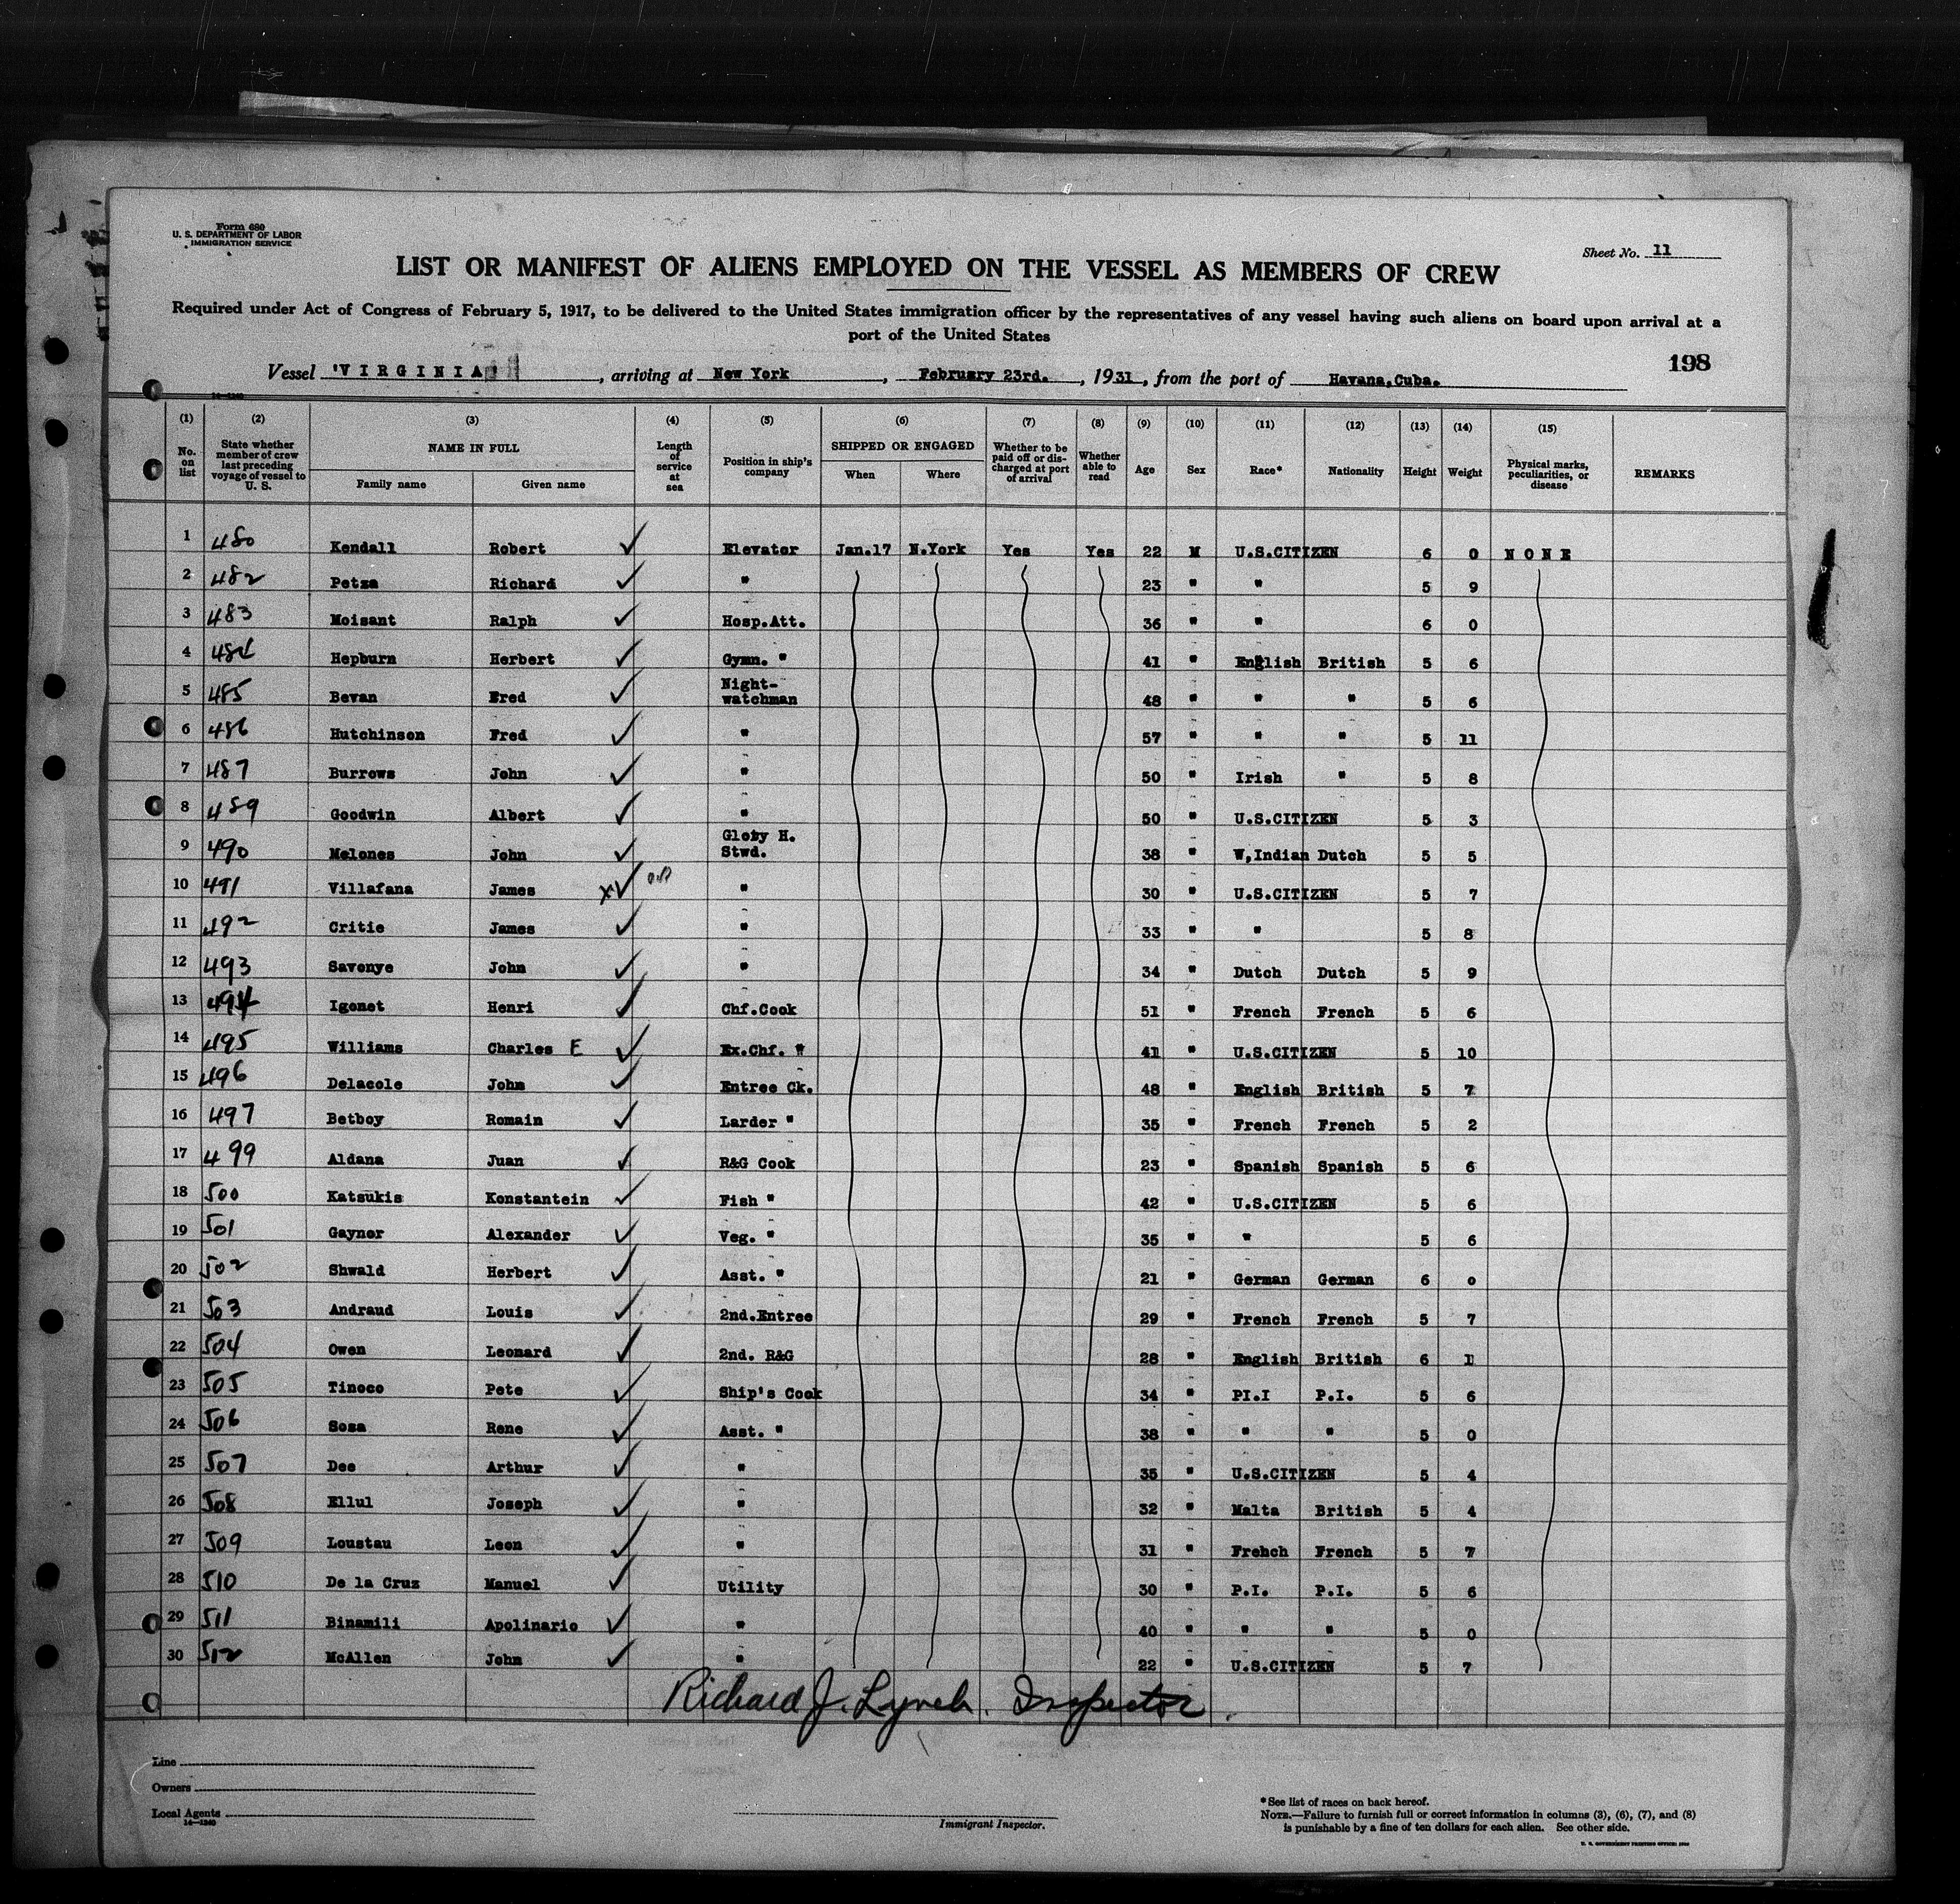 Form 680
U. S. DEPARTMENT OF LABOR
IMMIGRATION SERVICE
Sheet No. 11
LIST OR MANIFEST OF ALIENS EMPLOYED ON THE VESSEL AS MEMBERS OF CREW
Required under Act of Congress of February 5, 1917, to be delivered to the United States immigration officer by the representatives of any vessel having such aliens on board upon arrival at a
port of the United States
198
Vessel 'VIRGINIA', arriving at New York, February 23rd., 1931, from the port of Havana,Cuba.
14—1240
(1) (2) (3) (4) (5) (6) (7) (8) (9) (10) (11) (12) (13) (14) (15)
No. on list | State whether member of crew last preceding voyage of vessel to U. S. | NAME IN FULL | Family name | Given name | Length of service at sea | Position in ship's company | SHIPPED OR ENGAGED | When | Where | Whether to be paid off or discharged at port of arrival | Whether able to read | Age | Sex | Race* | Nationality | Height | Weight | Physical marks, peculiarities, or disease | REMARKS
1 480 Kendall Robert ✓ Elevator Jan.17 N.York Yes Yes 22 M U.S.CITIZEN 6 0 NONE
2 482 Petza Richard ✓ " 23 " " 5 9
3 483 Moisant Ralph ✓ Hosp.Att. 36 " " 6 0
4 484 Hepburn Herbert ✓ Gymn. " 41 " English British 5 6
5 485 Bevan Fred ✓ Night-watchman 48 " " " 5 6
6 486 Hutchinson Fred ✓ " 57 " " " 5 11
7 487 Burrows John ✓ " 50 " Irish " 5 8
8 489 Goodwin Albert ✓ " 50 " U.S.CITIZEN 5 3
9 490 Melones John ✓ H. Stwd. 38 " W,Indian Dutch 5 5
10 491 Villafana James x✓ " 30 " U.S.CITIZEN 5 7
11 492 Critie James ✓ " 33 " " 5 8
12 493 Savonye John ✓ " 34 " Dutch Dutch 5 9
13 494 Igonet Henri ✓ Chf.Cook 51 " French French 5 6
14 495 Williams Charles E ✓ Ex.Chf. " 41 " U.S.CITIZEN 5 10
15 496 Delacole John ✓ Entree Ck. 48 " English British 5 7
16 497 Betboy Romain ✓ Larder " 35 " French French 5 2
17 499 Aldana Juan ✓ R&G Cook 23 " Spanish Spanish 5 6
18 500 Katsukis Konstantein ✓ Fish " 42 " U.S.CITIZEN 5 6
19 501 Gaynor Alexander ✓ Veg. " 35 " " 5 6
20 502 Shwald Herbert ✓ Asst. " 21 " German German 6 0
21 503 Andraud Louis ✓ 2nd.Entree 29 " French French 5 7
22 504 Owen Leonard ✓ 2nd. R&G 28 " English British 6 1
23 505 Tinoco Pete ✓ Ship's Cook 34 " PI.I P.I. 5 6
24 506 Sosa Rene ✓ Asst. " 38 " " " 5 0
25 507 Dee Arthur ✓ " 35 " U.S.CITIZEN 5 4
26 508 Ellul Joseph ✓ " 32 " Malta British 5 4
27 509 Loustau Leon ✓ " 31 " Frehch French 5 7
28 510 De la Cruz Manuel ✓ Utility 30 " P.I. P.I. 5 6
29 511 Binamili Apolinario ✓ " 40 " " " 5 0
30 512 McAllen John ✓ " 22 " U.S.CITIZEN 5 7
Richard J. Lynch. Inspector
Line
Owners
Local Agents
14—1240
Immigrant Inspector.
*See list of races on back hereof.
NOTE.—Failure to furnish full or correct information in columns (3), (6), (7), and (8)
is punishable by a fine of ten dollars for each alien. See other side.